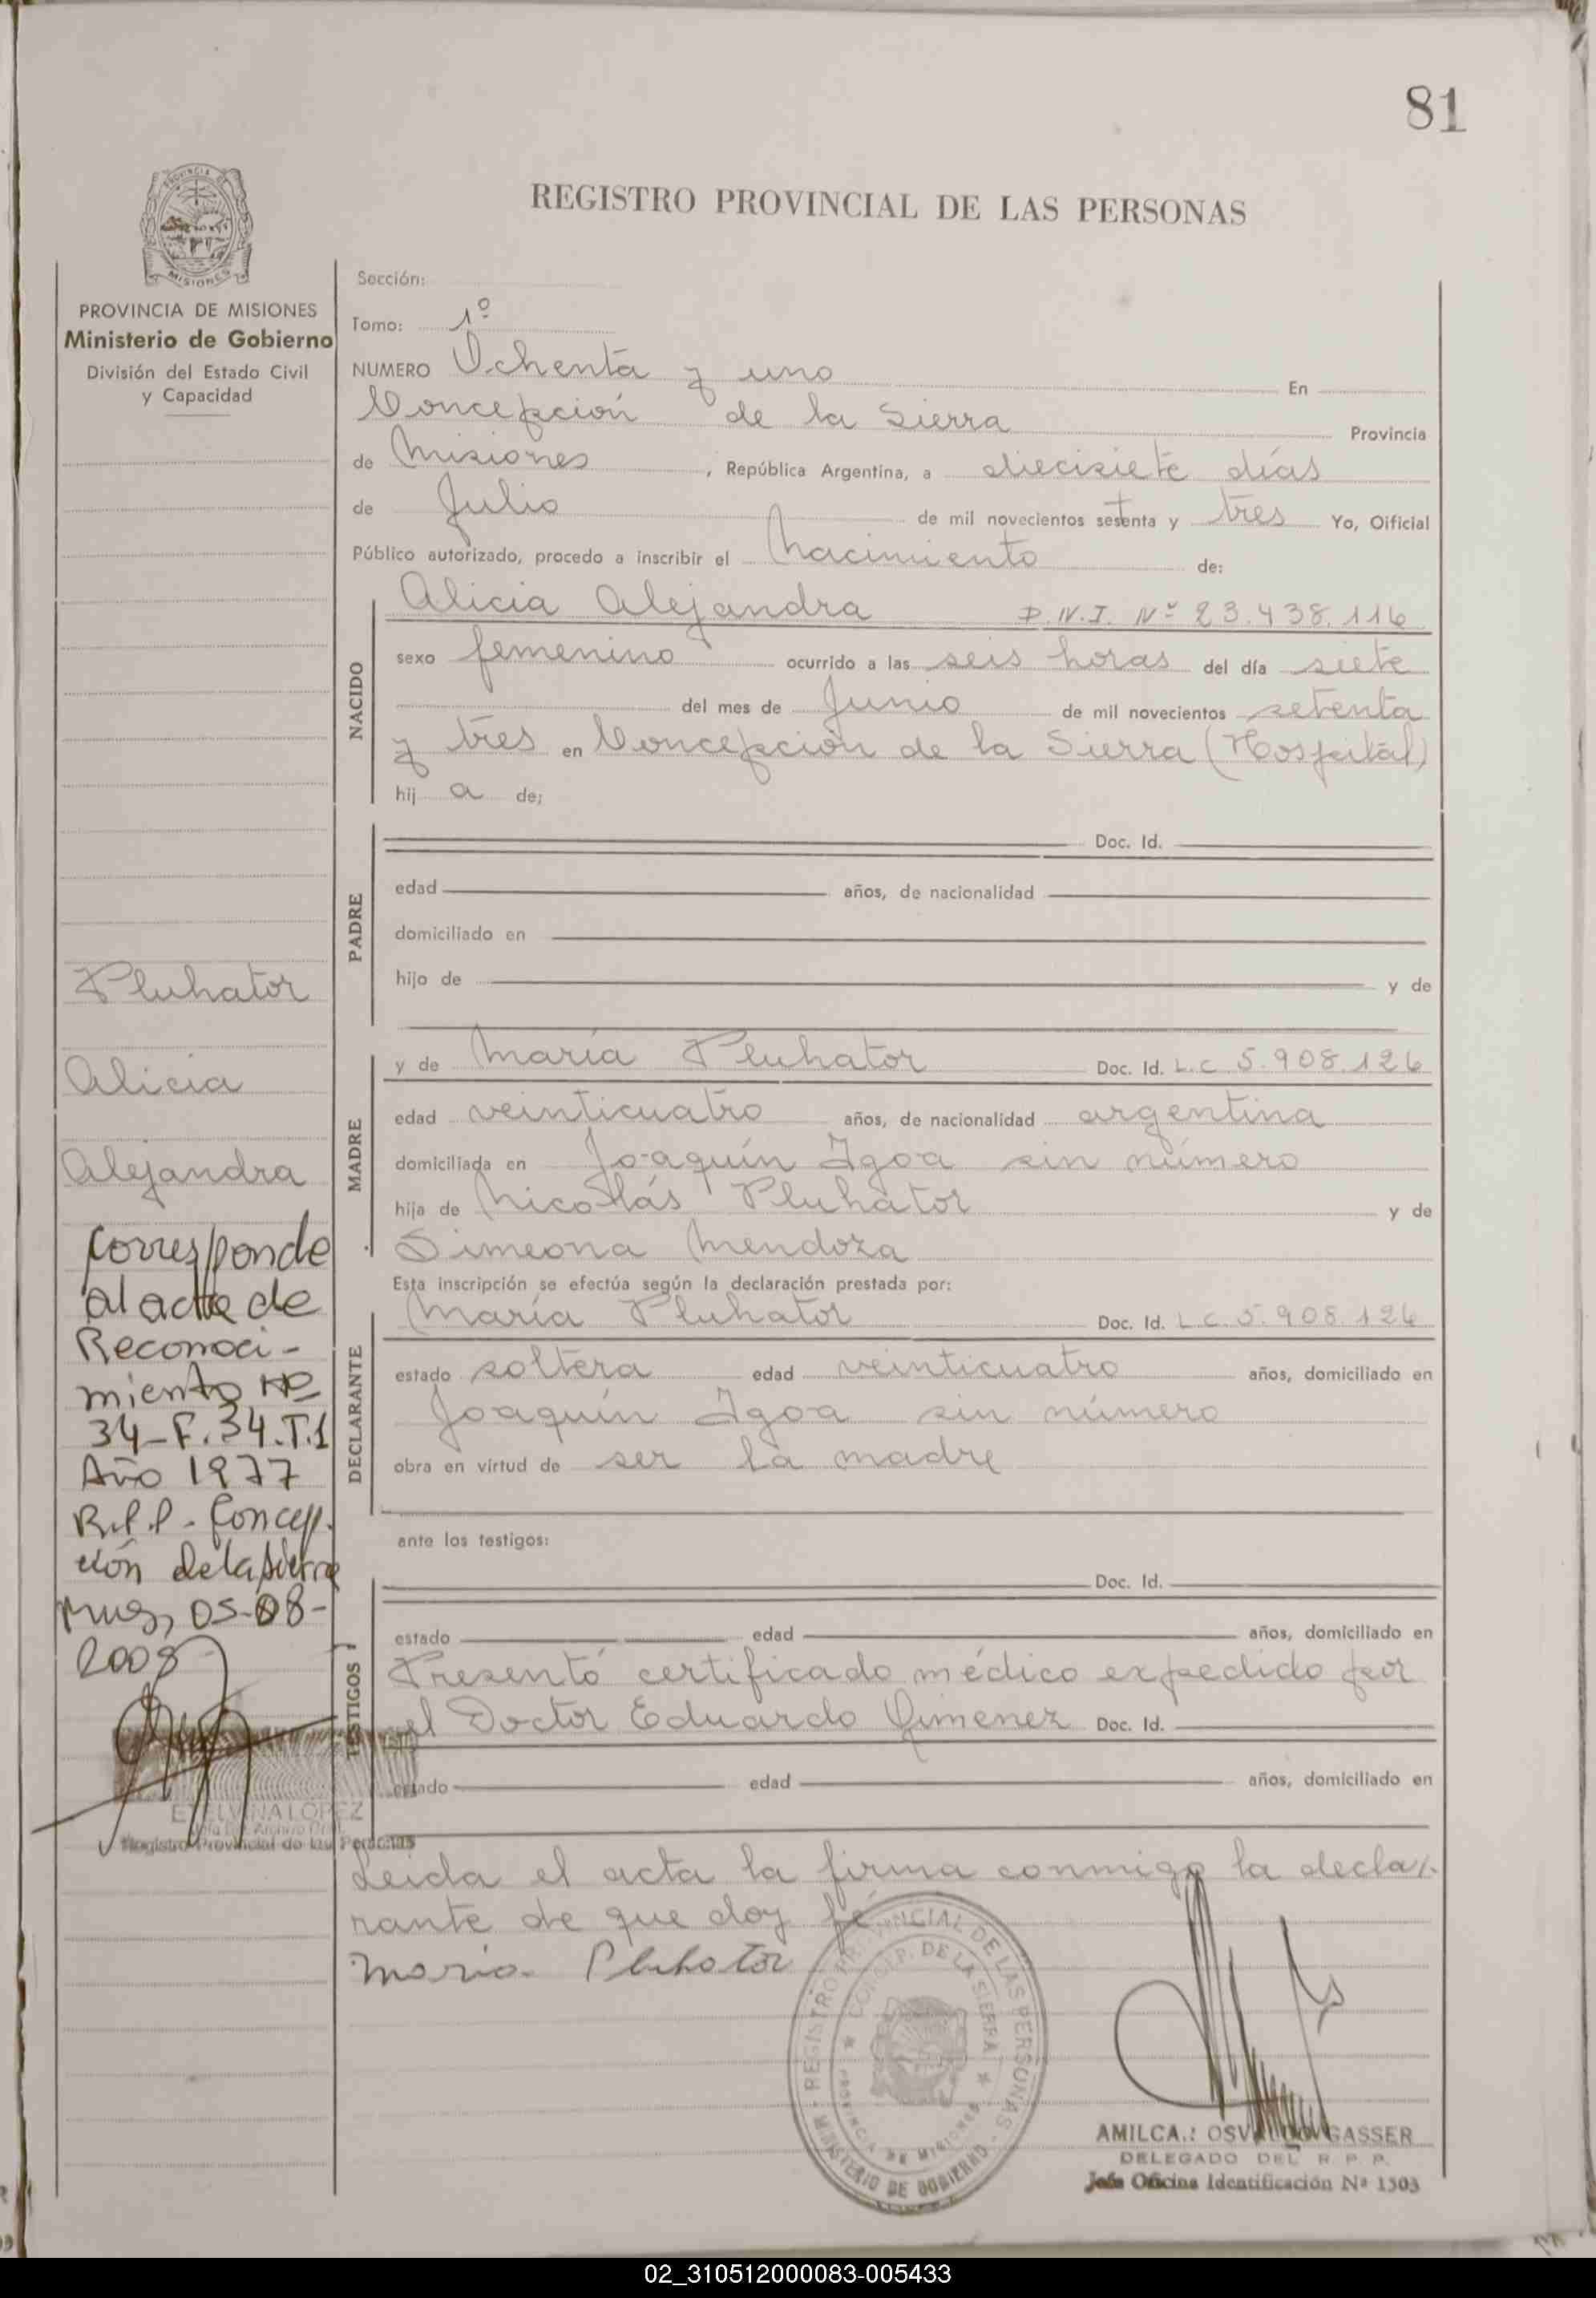 81
REGISTRO PROVINCIAL DE LAS PERSONAS
PROVINCIA DE
MISIONES
PROVINCIA DE MISIONES
Ministerio de Gobierno
División del Estado Civil
y Capacidad
Sección:
Tomo: 1º
NUMERO Ochenta y uno En
Concepción de la Sierra Provincia
de Misiones , República Argentina, a diecisiete días
de Julio de mil novecientos setenta y tres Yo, Oificial
Público autorizado, procedo a inscribir el Nacimiento de:
NACIDO
Alicia Alejandra D.N.I. Nº 23.438.116
sexo femenino ocurrido a las seis horas del día siete
del mes de Junio de mil novecientos setenta
y tres en Concepción de la Sierra (Hospital)
hij a de;
PADRE
Doc. Id.
edad años, de nacionalidad
domiciliado en
hijo de y de
MADRE
y de María Pluhator Doc. Id. L.C 5.908.126
edad veinticuatro años, de nacionalidad argentina
domiciliada en Joaquín Igoa sin número
hija de Nicolás Pluhator y de
Simeona Mendoza
Esta inscripción se efectúa según la declaración prestada por:
DECLARANTE
María Pluhator Doc. Id. L.C. 5.908.126
estado soltera edad veinticuatro años, domiciliado en
Joaquín Igoa sin número
obra en virtud de ser la madre
ante los testigos:
TESTIGOS
Doc. Id.
estado edad años, domiciliado en
Presentó certificado médico expedido por
el Doctor Eduardo Gimenez Doc. Id.
estado edad años, domiciliado en
Leida el acta la firma conmigo la decla/.
rante de que doy fé
Maria Pluhator
Pluhator
Alicia
Alejandra
Corresponde
al acta de
Reconoci-
miento Nº
34-F.34.T.1
Año 1977
R.P.P. - Concep.
ción de la Sierra
Mnes, 05-08-
2008
ETELVINA LOPEZ
Registro Provincial de las Personas
REGISTRO PROVINCIAL DE LAS PERSONAS
CONCEP. DE LA SIERRA
PROVINCIA DE MISIONES
MINISTERIO DE GOBIERNO
AMILCAR OSVALDO GASSER
DELEGADO DEL R. P. P.
Jefe Oficina Identificación Nº 1503
02_310512000083-005433